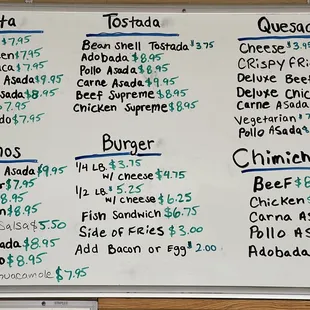 Tostada
Bean Shell Tostada $3.75
Adobada $8.95
Pollo Asada $8.95
Carne Asada $9.95
Beef Supreme $8.95
Chicken Supreme $8.95
Burger
1/4 LB. $3.75
w/ cheese $4.75
1/2 LB $5.25
w/ cheese $6.25
Fish Sandwich $6.75
Side of Fries $3.00
Add Bacon or Egg $2.00
$7.95
$7.95
$7.95
Asada $9.95
$8.95
$7.95
Asada $9.95
$7.95
$8.95
$8.95
Salsa $5.50
$8.95
$8.95
$7.95
Quesad
Cheese $3.9
Crispy Fri
Deluxe Beef
Deluxe Chic
Carne Asada
Vegetarian $7
Pollo Asada
Chimich
Beef $8
Chicken
Carna As
Pollo As
Adobada